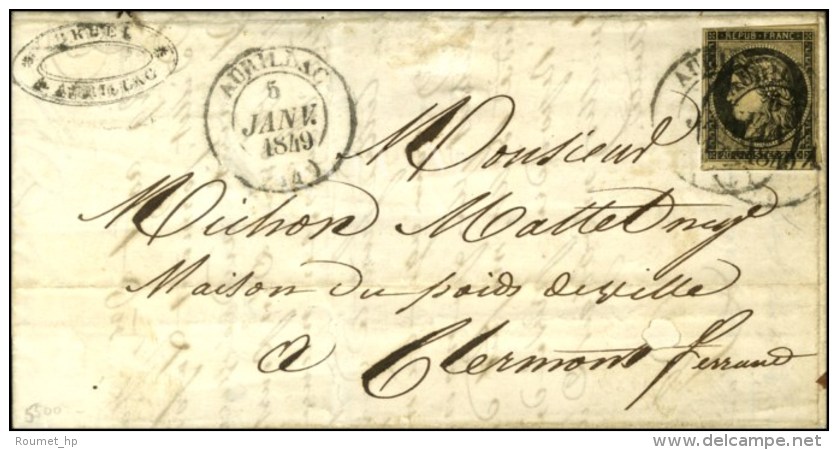 AURILLAC
AURILLAC
5
JANV.
1849
REPUB FRANC
Monsieur
Michon
Maison du poids de ville
a Clermont ferrand
5500
Roumet_hp
www.delcampe.net